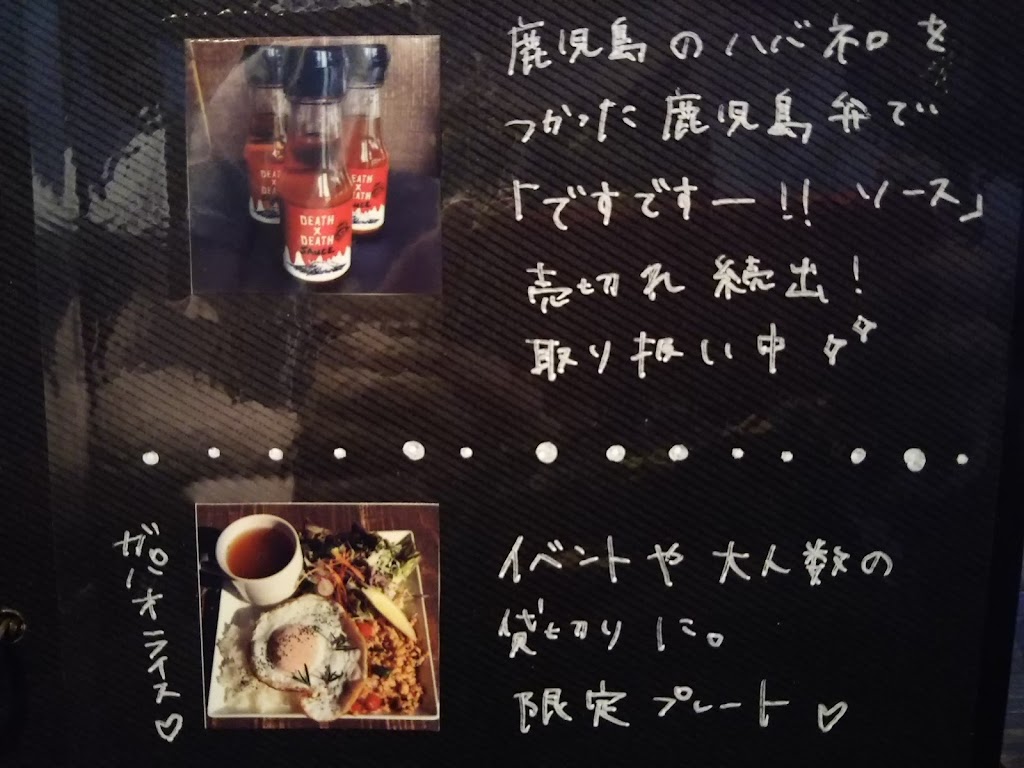 鹿児島のハバネロを
つかった鹿児島弁で
「ですですー!! ソース」
売切れ続出!
取り扱い中
DEATH
×
DEATH
SAUCE
イベントや大人数の
貸切りに。
限定プレート♡
ガパオライス♡